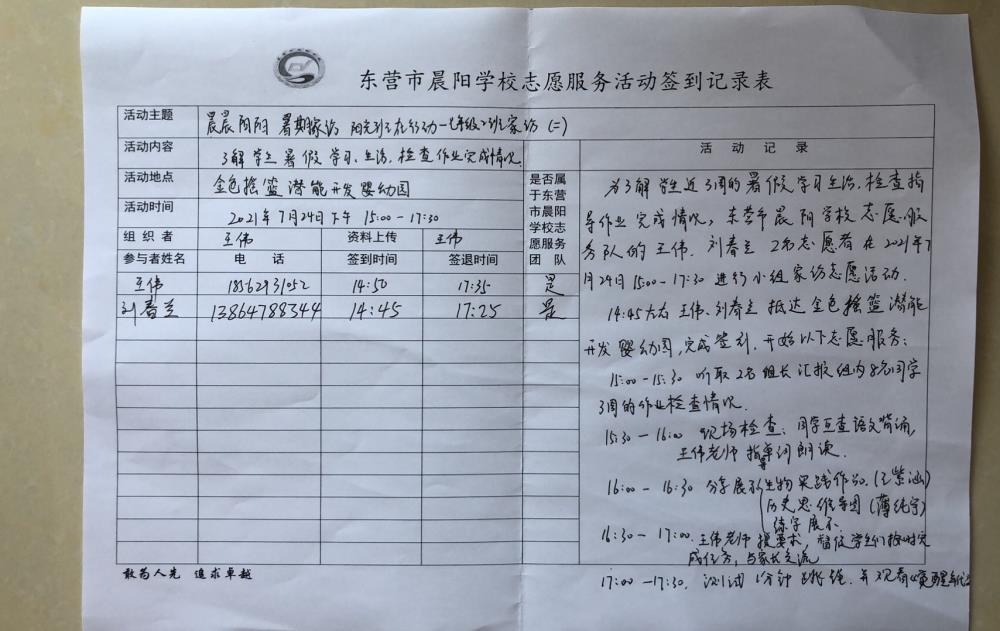 东营市晨阳学校志愿服务活动签到记录表
活动主题 晨晨阳阳 暑期家访 阳光列车在行动—七年级2班家访(二)
活动内容 了解学生暑假学习、生活,检查作业完成情况
活动地点 金色摇篮潜能开发婴幼园
活动时间 2021年7月24日下午 15:00-17:30
组织者 王伟 资料上传 王伟
是否属于东营市晨阳学校志愿服务团队
参与者姓名 电话 签到时间 签退时间
王伟 18562931052 14:50 17:35 是
刘春兰 13864788344 14:45 17:25 是
活动记录
为了解学生近3周的暑假学习生活,检查指
导作业完成情况,东营市晨阳学校志愿服
务队的王伟、刘春兰2名志愿者在2021年7
月24日15:00-17:30进行小组家访志愿活动.
14:45左右 王伟、刘春兰抵达金色摇篮潜能
开发婴幼园,完成签到,开始以下志愿服务:
15:00-15:30 听取2名组长汇报组内8名同学
3周的作业检查情况.
15:30-16:00 现场检查:同学互查语文背诵,
王伟老师指导单词朗读.
16:00-16:30 分享展示生物实践作品.(王紫涵)
历史思维导图(薄纯宇)
练字展示
16:30-17:00. 王伟老师提要求,督促学生们按时完
成任务,与家长交流
17:00-17:30. 测试1分钟跳绳.并观看《觉醒年代》
敢为人先 追求卓越